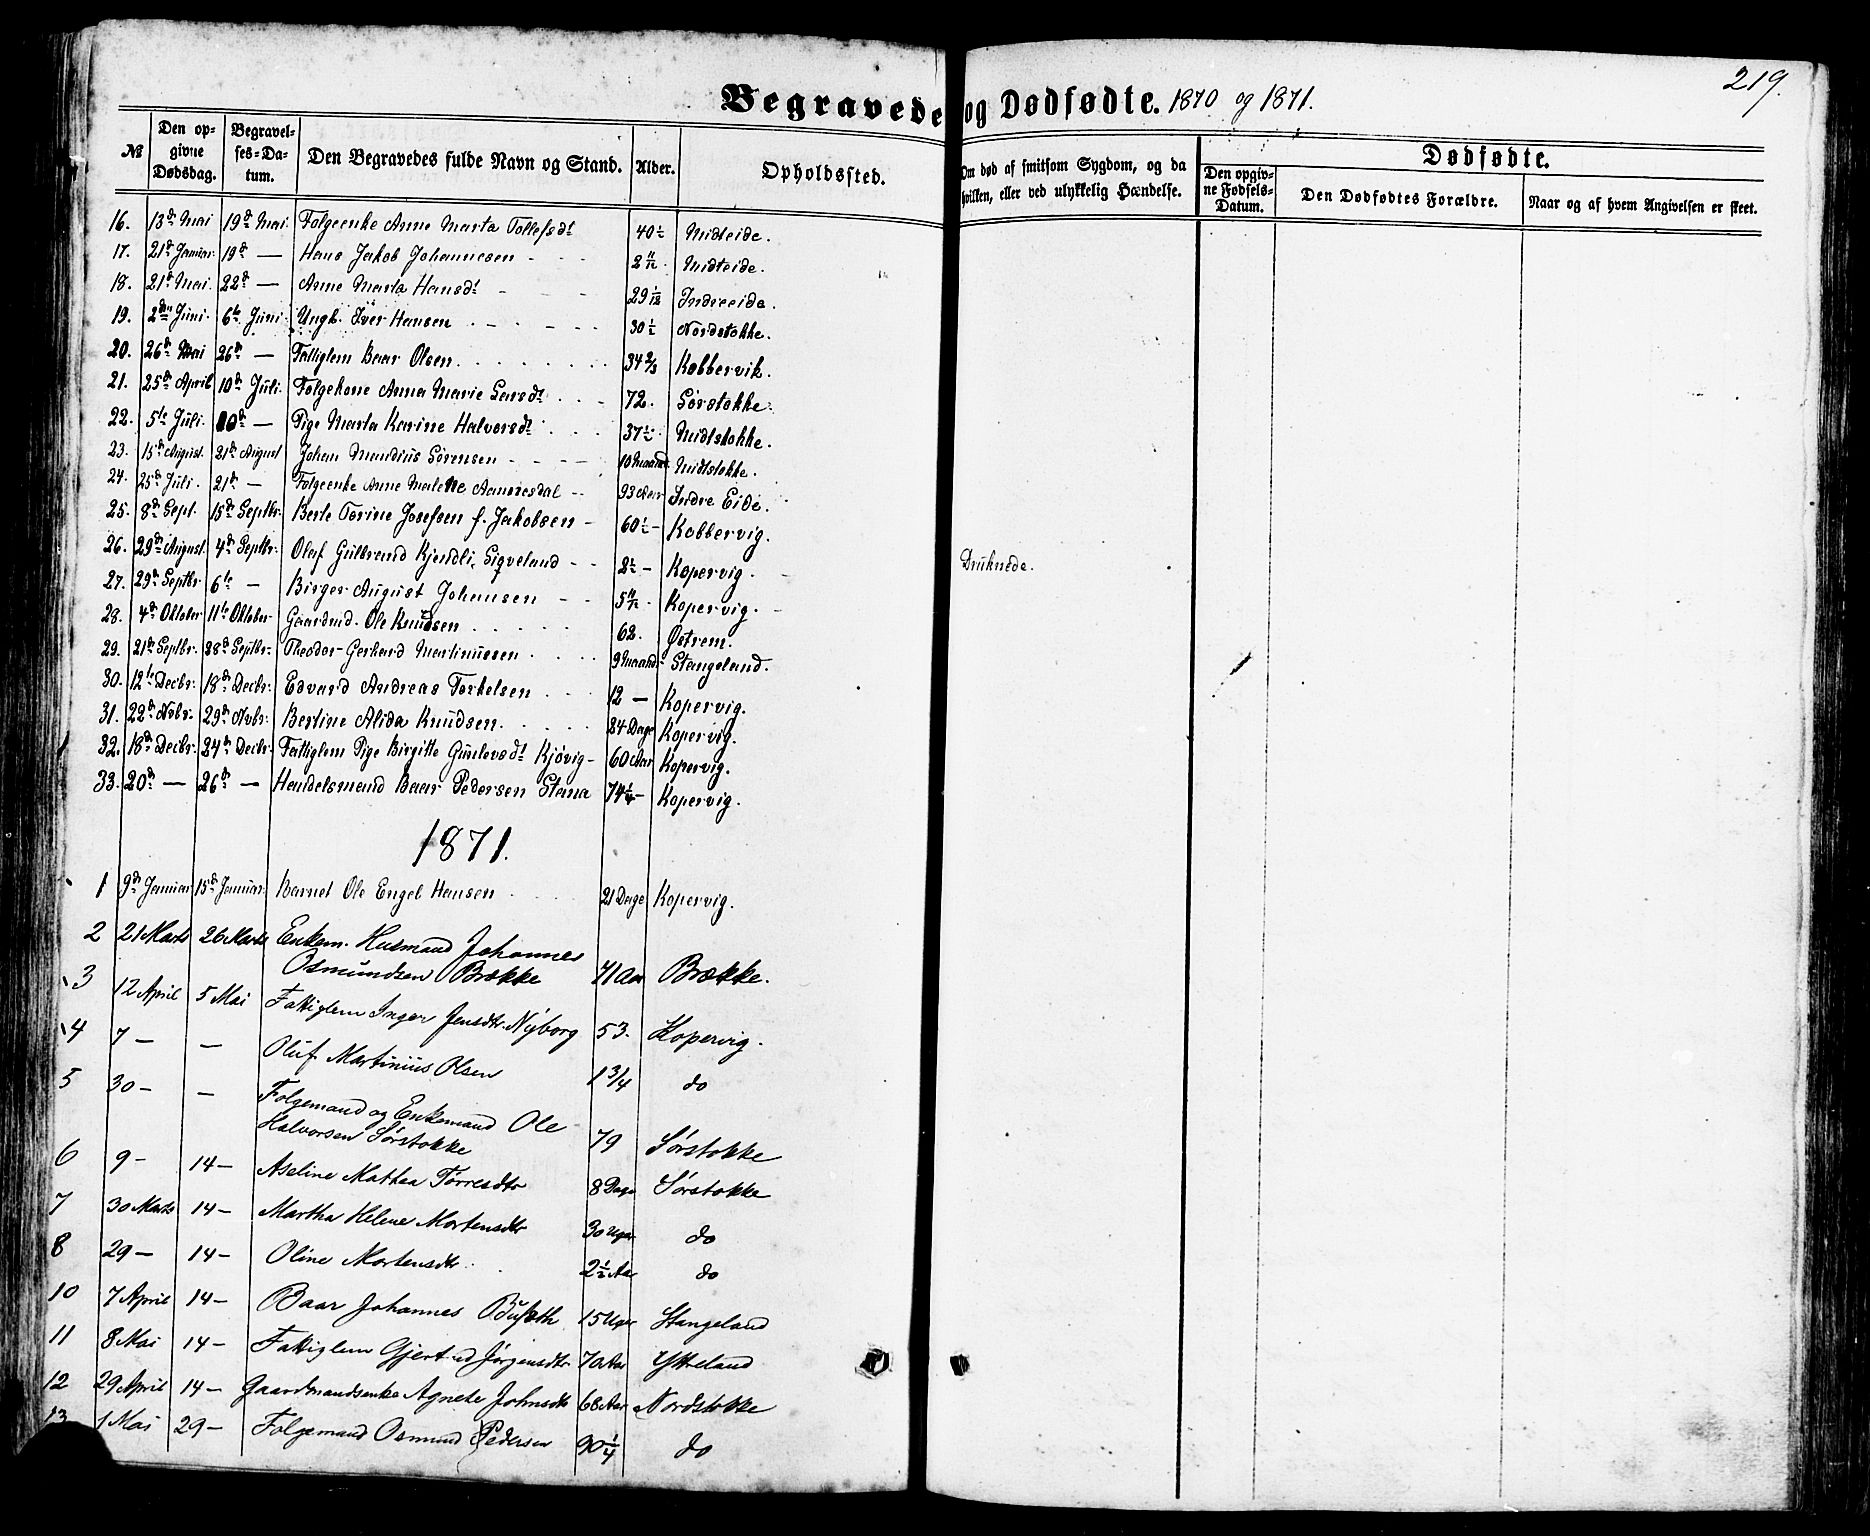 219.
Begravede og Dødfødte. 1870 og 1871.
№ Den opgivne Dødsdag. Begravelses-Datum. Den Begravedes fulde Navn og Stand. Alder. Opholdssted. Om død af smitsom Sygdom, og da hvilken, eller ved ulykkelig Hændelse. Dødfødte. Den opgivne Fødsels-Datum. Den Dødfødtes Forældre. Naar og af hvem Angivelsen er skeet.
16. 13de Mai 19de Mai. Folgeenke Anne Marta Tollefsdt 40½ Midteide.
17. 21de Januar. 19de — Hans Jakob Johannesen 2 11/12 Midteide.
18. 21de Mai. 22de — Anne Marta Hansdt 29 1/12 Indreeide.
19. 2den Juni. 6te Juni. Ungk. Iver Hansen 30½ Nordstokke.
20. 26de Mai 26de — Fattiglem Baar Olsen 34 2/3 Kobbervik.
21. 25de April 10de Juli. Folgekone Anna Marie Larsdt 72. Sørstokke.
22. 5te Juli. 10de — Pige Marta Karine Halvorsdt 37½ Midtstokke.
23. 15de August. 21de August Johan Mandius Sørensen 10 Maand. Midtstokke.
24. 25de Juli. 21de — Folgeenke Anne Malene Aamresdal 93 Aar Indre Eide.
25. 8de Sept. 15de Septbr. Berte Torine Josefsen f. Jakobsen 60½ — Kobbervig.
26. 29de August. 4de Septbr. Olaf Gulbrand Kjendli Sigveland 2½ — Kopervig. Druknede.
27. 29de Septbr 6te — Birger August Johansen 5 11/12 Kopervig.
28. 4de Oktober 11te Oktober Gaardmd. Ole Knudsen 62. Østrem.
29. 21de Septbr. 28de Septbr. Theodor Gerhard Martinusen 9 Maand. Stangeland.
30. 12te Decbr. 18de Decbr. Edvard Andreas Torkelsen 12 — Kopervig.
31. 22de Nvbr. 29de Nvbr. Bertine Alida Knudsen. 24 Dage Kopervig.
32. 18de Decbr. 24de Decbr. Fattiglem Pige Birgitte Gunlevsdt Kjøvig 60 Aar Kopervig.
33. 20de — 26de — Handelsmand Baar Pedersen Stana 74¼ — Kopervig.
1871.
1 9de Januar 15de Januar Barnet Ole Engel Hansen 21 Dage Kopervig.
2 21 Marts 26 Marts Enkem. Husmand Johannes
Osmundsen Brække 71 Aar Brække.
3 12 April 5 Mai Fattiglem Inger Jensdtr. Nyborg 53. Kopervig.
4 7 — — Oluf Martinius Olsen 1 3/4 do
5 30 — — Folgemand og Enkemand Ole
Halvorsen Sørstokke 79 Sørstokke
6 9 — 14 — Aseline Mathea Torresdtr 8 Dage Sørstokke
7 30 Marts 14 — Martha Helene Mortensdtr 30 Uger do
8 29 — 14 — Oline Mortensdtr. 2½ Aar do
10 7 April 14 — Baar Johannes 15 Uger Stangeland
11 8 Mai 14 — Fattiglem Gjertrud Jørgensdtr 70 Aar Ytreland
12 29 April 14 — Gaardmandsenke Agnete Johnsdtr 68 Aar Nordstokke
13 1 Mai 29 — Folgemand Osmund Pedersen 90¼ do